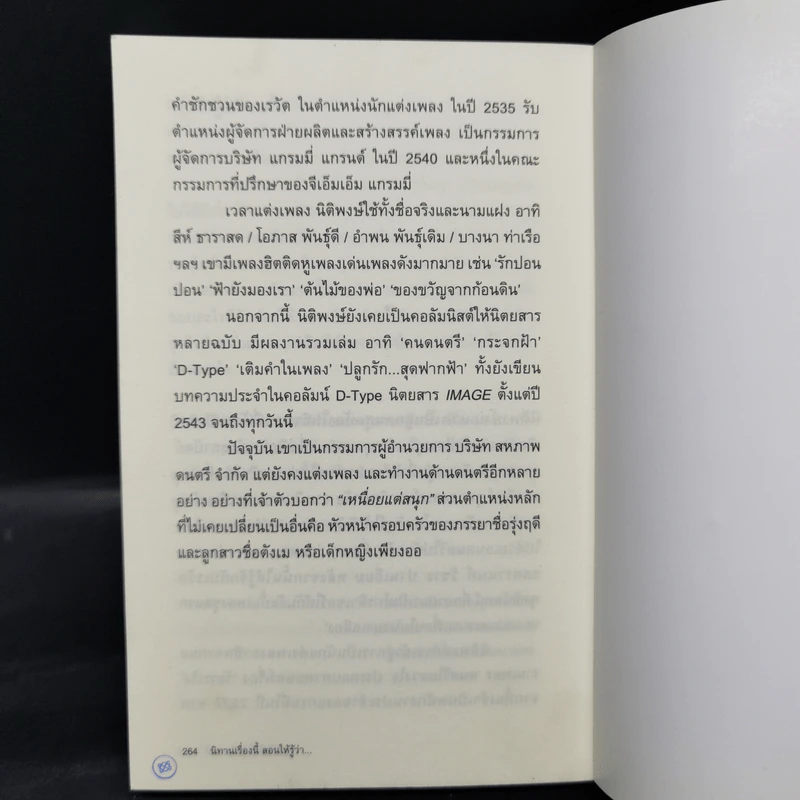 คำชักชวนของเรวัต ในตำแหน่งนักแต่งเพลง ในปี 2535 รับ
ตำแหน่งผู้จัดการฝ่ายผลิตและสร้างสรรค์เพลง เป็นกรรมการ
ผู้จัดการบริษัท แกรมมี่ แกรนด์ ในปี 2540 และหนึ่งในคณะ
กรรมการที่ปรึกษาของจีเอ็มเอ็ม แกรมมี่
เวลาแต่งเพลง นิติพงษ์ใช้ทั้งชื่อจริงและนามแฝง อาทิ
สีห์ ธาราสด / โอภาส พันธุ์ดี / อำพน พันธุ์เดิม / บางนา ท่าเรือ
ฯลฯ เขามีเพลงฮิตติดหูเพลงเด่นเพลงดังมากมาย เช่น 'รักปอน
ปอน' 'ฟ้ายังมองเรา' 'ต้นไม้ของพ่อ' 'ของขวัญจากก้อนดิน'
นอกจากนี้ นิติพงษ์ยังเคยเป็นคอลัมนิสต์ให้นิตยสาร
หลายฉบับ มีผลงานรวมเล่ม อาทิ 'คนดนตรี' 'กระจกฝ้า'
'D-Type' 'เติมคำในเพลง' 'ปลูกรัก...สุดฟากฟ้า' ทั้งยังเขียน
บทความประจำในคอลัมน์ D-Type นิตยสาร IMAGE ตั้งแต่ปี
2543 จนถึงทุกวันนี้
ปัจจุบัน เขาเป็นกรรมการผู้อำนวยการ บริษัท สหภาพ
ดนตรี จำกัด แต่ยังคงแต่งเพลง และทำงานด้านดนตรีอีกหลาย
อย่าง อย่างที่เจ้าตัวบอกว่า "เหนื่อยแต่สนุก" ส่วนตำแหน่งหลัก
ที่ไม่เคยเปลี่ยนเป็นอื่นคือ หัวหน้าครอบครัวของภรรยาชื่อรุ่งฤดี
และลูกสาวชื่อตังเม หรือเด็กหญิงเพียงออ
264 นิทานเรื่องนี้ สอนให้รู้ว่า...